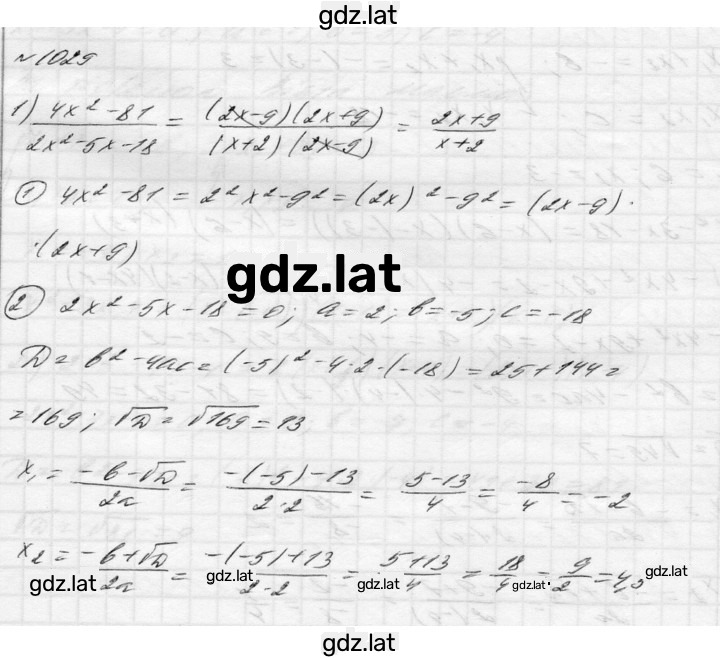 gdz.lat
№1029
1) (4x² - 81)/(2x² - 5x - 18) = ((2x-9)(2x+9))/((x+2)(2x-9)) = (2x+9)/(x+2)
① 4x² - 81 = 2²x² - 9² = (2x)² - 9² = (2x-9)·
·(2x+9)
gdz.lat
② 2x² - 5x - 18 = 0; a = 2; b = -5; c = -18
D = b² - 4ac = (-5)² - 4·2·(-18) = 25 + 144 =
= 169; √D = √169 = 13
x₁ = (-b - √D)/2a = (-(-5) - 13)/(2·2) = (5-13)/4 = -8/4 = -2
x₂ = (-b + √D)/2a = (-(-5) + 13)/(2·2) = (5+13)/4 = 18/4 = 9/2 = 4,5
gdz.lat gdz.lat gdz.lat gdz.lat gdz.lat
gdz.lat